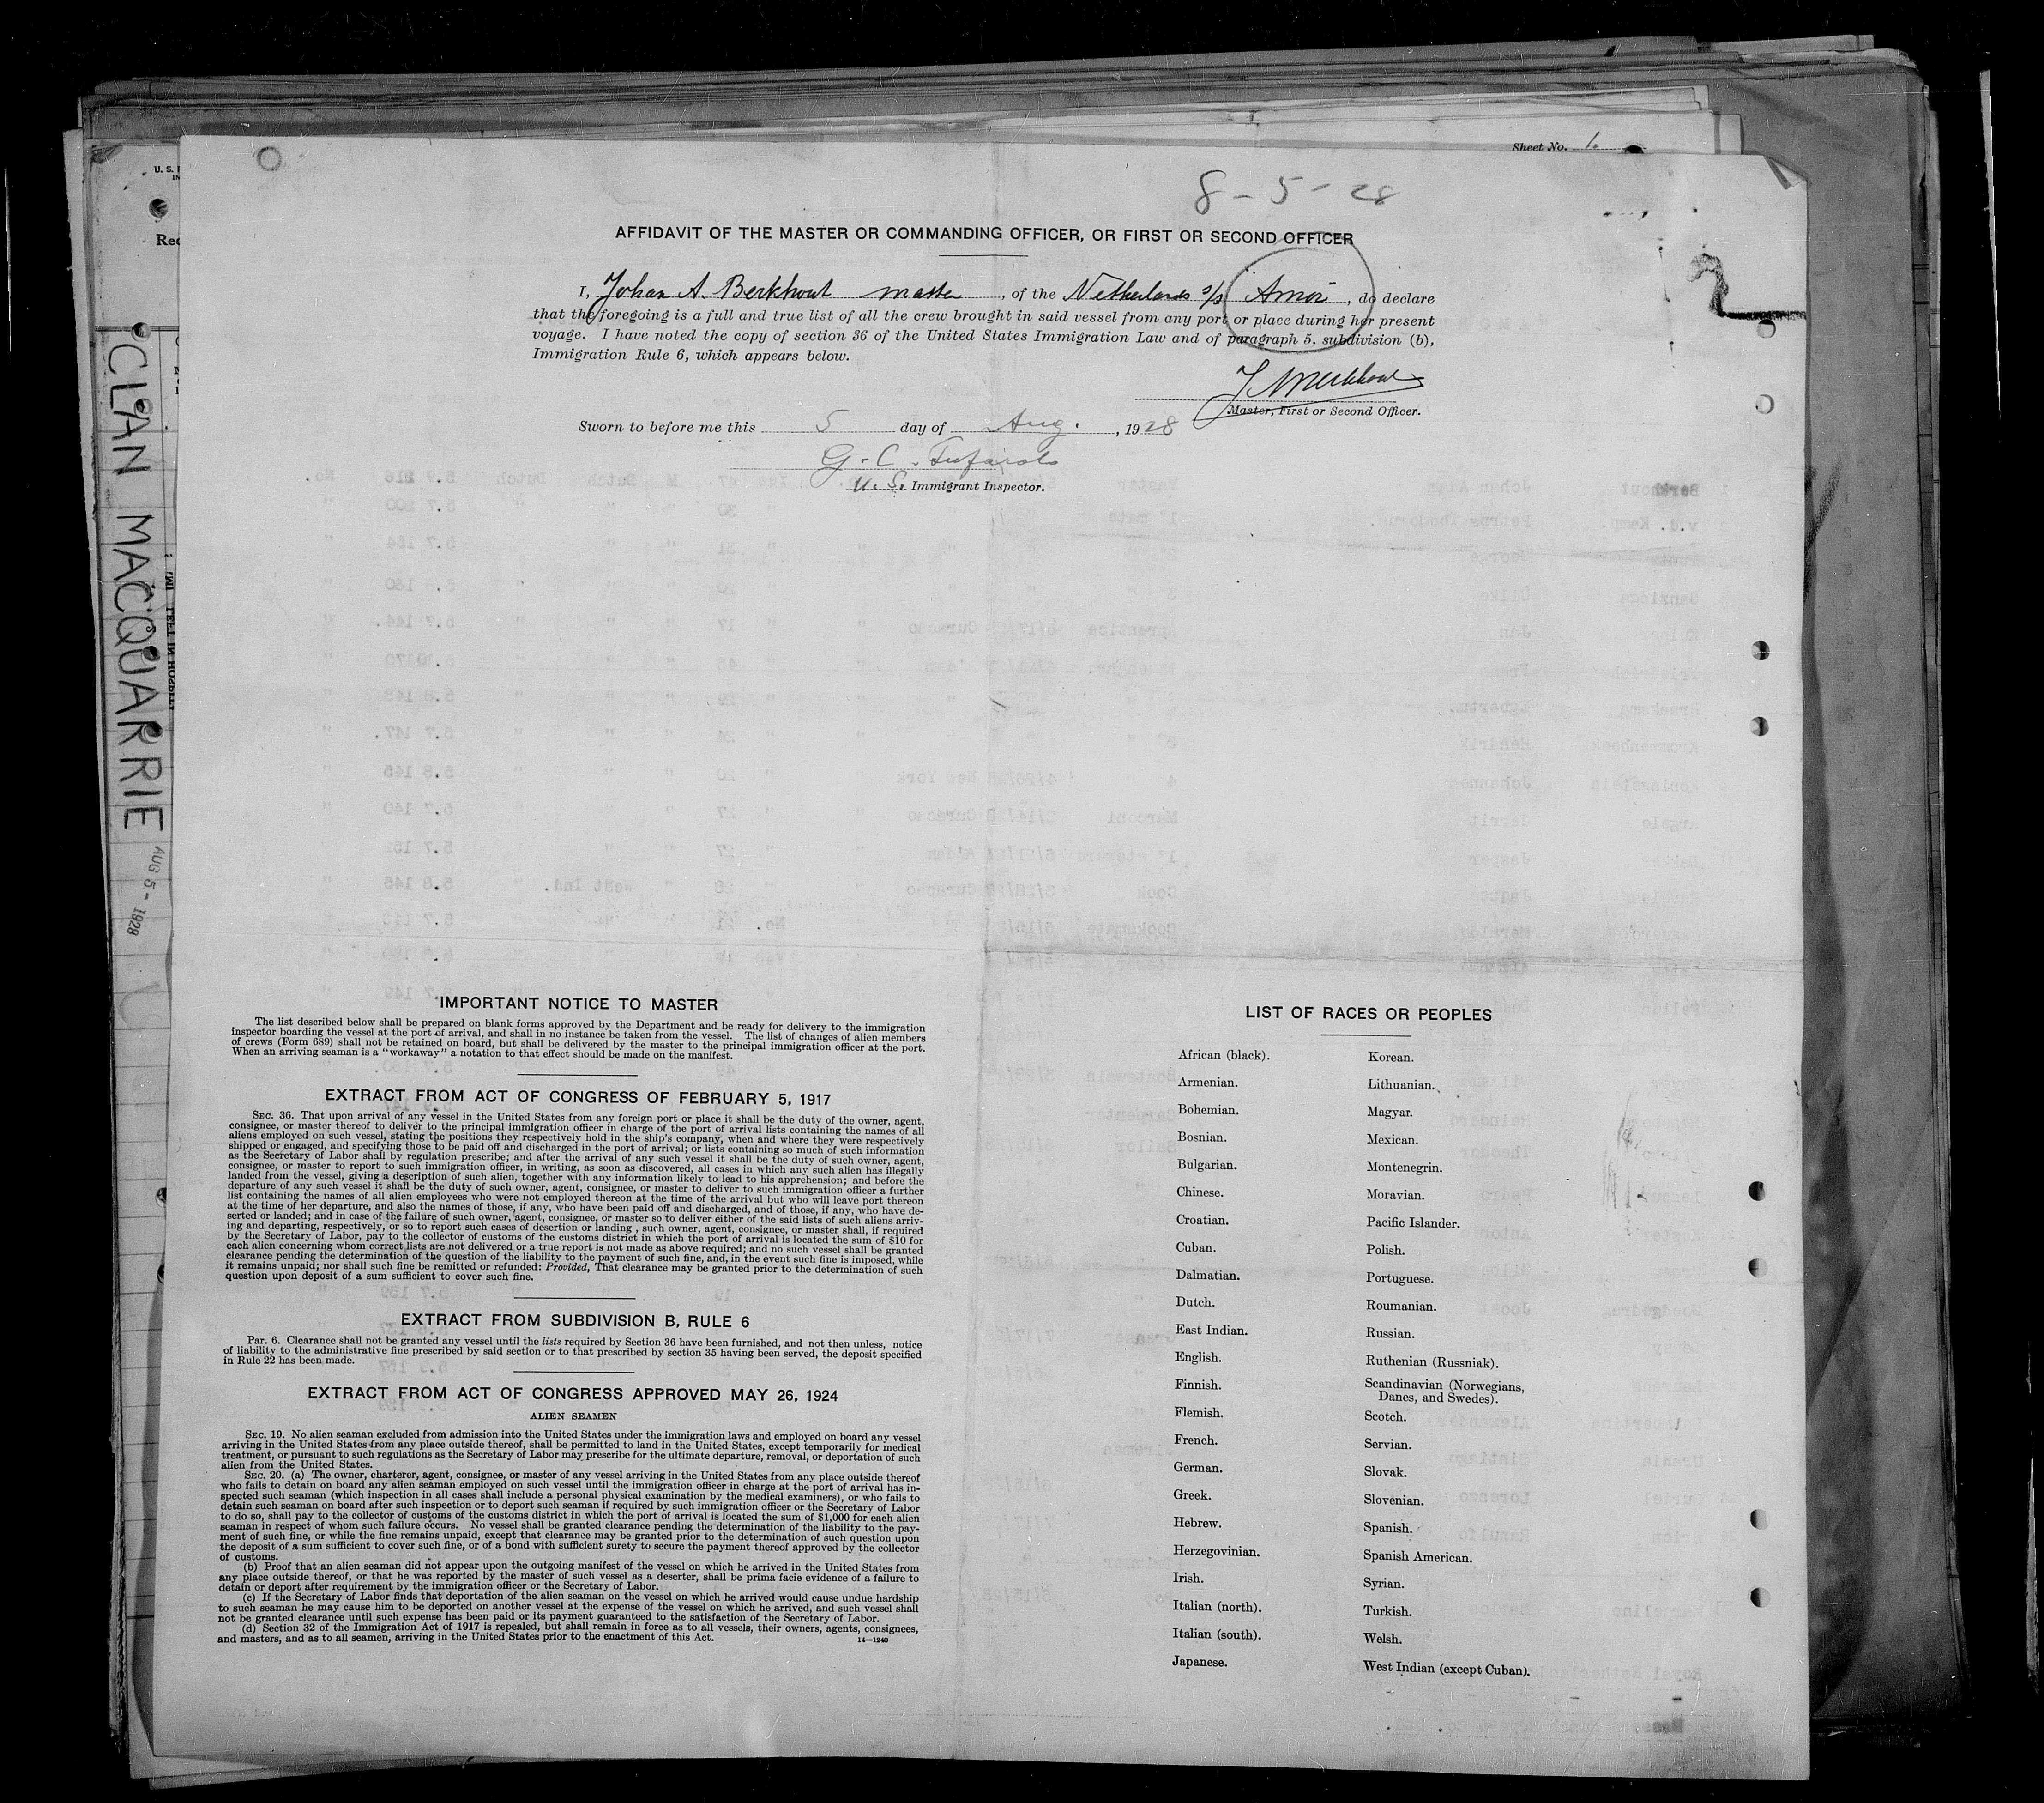 Sheet No. 1.
8-5-28
AFFIDAVIT OF THE MASTER OR COMMANDING OFFICER, OR FIRST OR SECOND OFFICER
I, Johan A. Berkhout master, of the Netherlands s/s Amor, do declare
that the foregoing is a full and true list of all the crew brought in said vessel from any port or place during her present
voyage. I have noted the copy of section 36 of the United States Immigration Law and of paragraph 5, subdivision (b),
Immigration Rule 6, which appears below.
Master, First or Second Officer.
Sworn to before me this 5 day of Aug., 1928
U. S. Immigrant Inspector.
CLAN MACQUARRIE
AUG 5 - 1928
IMPORTANT NOTICE TO MASTER
The list described below shall be prepared on blank forms approved by the Department and be ready for delivery to the immigration
inspector boarding the vessel at the port of arrival, and shall in no instance be taken from the vessel. The list of changes of alien members
of crews (Form 689) shall not be retained on board, but shall be delivered by the master to the principal immigration officer at the port.
When an arriving seaman is a "workaway" a notation to that effect should be made on the manifest.
EXTRACT FROM ACT OF CONGRESS OF FEBRUARY 5, 1917
SEC. 36. That upon arrival of any vessel in the United States from any foreign port or place it shall be the duty of the owner, agent,
consignee, or master thereof to deliver to the principal immigration officer in charge of the port of arrival lists containing the names of all
aliens employed on such vessel, stating the positions they respectively hold in the ship's company, when and where they were respectively
shipped or engaged, and specifying those to be paid off and discharged in the port of arrival; or lists containing so much of such information
as the Secretary of Labor shall by regulation prescribe; and after the arrival of any such vessel it shall be the duty of such owner, agent,
consignee, or master to report to such immigration officer, in writing, as soon as discovered, all cases in which any such alien has illegally
landed from the vessel, giving a description of such alien, together with any information likely to lead to his apprehension; and before the
departure of any such vessel it shall be the duty of such owner, agent, consignee, or master to deliver to such immigration officer a further
list containing the names of all alien employees who were not employed thereon at the time of the arrival but who will leave port thereon
at the time of her departure, and also the names of those, if any, who have been paid off and discharged, and of those, if any, who have de-
serted or landed; and in case of the failure of such owner, agent, consignee, or master so to deliver either of the said lists of such aliens arriv-
ing and departing, respectively, or so to report such cases of desertion or landing, such owner, agent, consignee, or master shall, if required
by the Secretary of Labor, pay to the collector of customs of the customs district in which the port of arrival is located the sum of $10 for
each alien concerning whom correct lists are not delivered or a true report is not made as above required; and no such vessel shall be granted
clearance pending the determination of the question of the liability to the payment of such fine, and, in the event such fine is imposed, while
it remains unpaid; nor shall such fine be remitted or refunded: Provided, That clearance may be granted prior to the determination of such
question upon deposit of a sum sufficient to cover such fine.
EXTRACT FROM SUBDIVISION B, RULE 6
Par. 6. Clearance shall not be granted any vessel until the lists required by Section 36 have been furnished, and not then unless, notice
of liability to the administrative fine prescribed by said section or to that prescribed by section 35 having been served, the deposit specified
in Rule 22 has been made.
EXTRACT FROM ACT OF CONGRESS APPROVED MAY 26, 1924
ALIEN SEAMEN
SEC. 19. No alien seaman excluded from admission into the United States under the immigration laws and employed on board any vessel
arriving in the United States from any place outside thereof, shall be permitted to land in the United States, except temporarily for medical
treatment, or pursuant to such regulations as the Secretary of Labor may prescribe for the ultimate departure, removal, or deportation of such
alien from the United States.
SEC. 20. (a) The owner, charterer, agent, consignee, or master of any vessel arriving in the United States from any place outside thereof
who fails to detain on board any alien seaman employed on such vessel until the immigration officer in charge at the port of arrival has in-
spected such seaman (which inspection in all cases shall include a personal physical examination by the medical examiners), or who fails to
detain such seaman on board after such inspection or to deport such seaman if required by such immigration officer or the Secretary of Labor
to do so, shall pay to the collector of customs of the customs district in which the port of arrival is located the sum of $1,000 for each alien
seaman in respect of whom such failure occurs. No vessel shall be granted clearance pending the determination of the liability to the pay-
ment of such fine, or while the fine remains unpaid, except that clearance may be granted prior to the determination of such question upon
the deposit of a sum sufficient to cover such fine, or of a bond with sufficient surety to secure the payment thereof approved by the collector
of customs.
(b) Proof that an alien seaman did not appear upon the outgoing manifest of the vessel on which he arrived in the United States from
any place outside thereof, or that he was reported by the master of such vessel as a deserter, shall be prima facie evidence of a failure to
detain or deport after requirement by the immigration officer or the Secretary of Labor.
(c) If the Secretary of Labor finds that deportation of the alien seaman on the vessel on which he arrived would cause undue hardship
to such seaman he may cause him to be deported on another vessel at the expense of the vessel on which he arrived, and such vessel shall
not be granted clearance until such expense has been paid or its payment guaranteed to the satisfaction of the Secretary of Labor.
(d) Section 32 of the Immigration Act of 1917 is repealed, but shall remain in force as to all vessels, their owners, agents, consignees,
and masters, and as to all seamen, arriving in the United States prior to the enactment of this Act.
14—1240
LIST OF RACES OR PEOPLES
African (black).
Armenian.
Bohemian.
Bosnian.
Bulgarian.
Chinese.
Croatian.
Cuban.
Dalmatian.
Dutch.
East Indian.
English.
Finnish.
Flemish.
French.
German.
Greek.
Hebrew.
Herzegovinian.
Irish.
Italian (north).
Italian (south).
Japanese.
Korean.
Lithuanian.
Magyar.
Mexican.
Montenegrin.
Moravian.
Pacific Islander.
Polish.
Portuguese.
Roumanian.
Russian.
Ruthenian (Russniak).
Scandinavian (Norwegians,
Danes, and Swedes).
Scotch.
Servian.
Slovak.
Slovenian.
Spanish.
Spanish American.
Syrian.
Turkish.
Welsh.
West Indian (except Cuban).